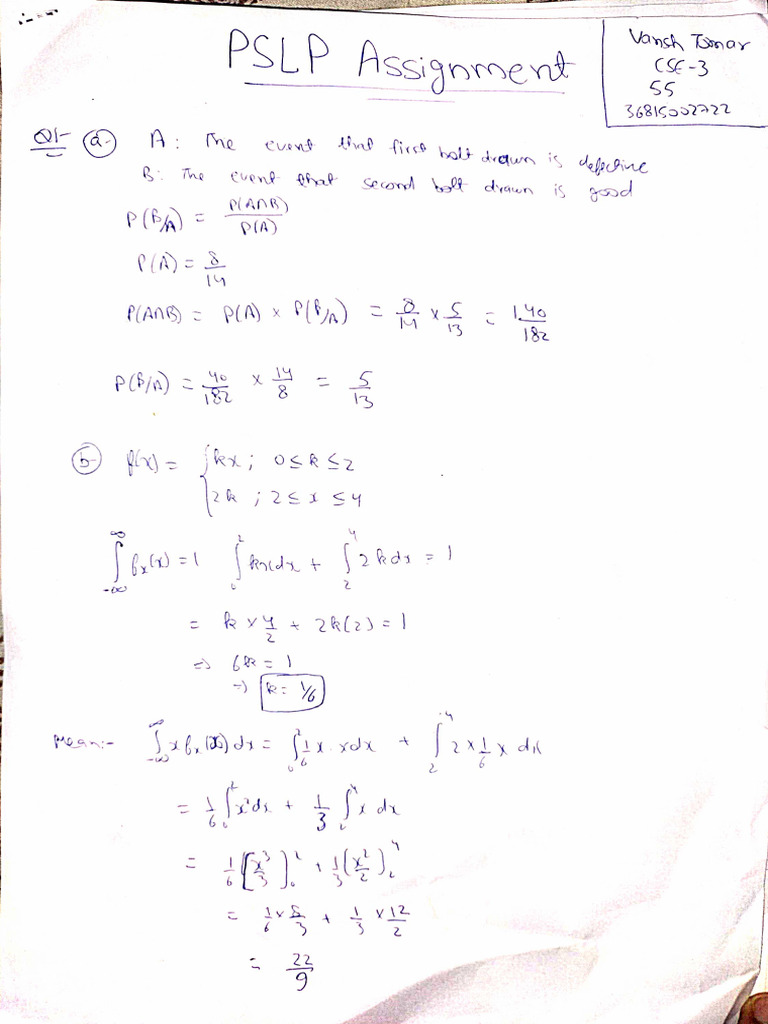 PSLP Assignment
Vansh Tomar
CSE-3
55
36815002722
Q1- (a-) A: The event that first bolt drawn is defective
B: The event that second bolt drawn is good
P(B/A) = P(A∩B)/P(A)
P(A) = 8/14
P(A∩B) = P(A) × P(B/A) = 8/14 × 5/13 = 40/182
P(B/A) = 40/182 × 14/8 = 5/13
(b-) f(x) = { kx ; 0 ≤ k ≤ 2
2k ; 2 ≤ x ≤ 4
∫_{-∞}^{∞} fx(x) = 1 ∫_0^2 kx dx + ∫_2^4 2k dx = 1
= k × 4/2 + 2k(2) = 1
⇒ 6k = 1
⇒ k = 1/6
Mean:- ∫_{-∞}^{∞} x fx(x) dx = ∫_0^2 1/6 x · x dx + ∫_2^4 2 × 1/6 x dx
= 1/6 ∫_0^2 x² dx + 1/3 ∫ ^4 x dx
= 1/6 [x³/3]_0^2 + 1/3 (x²/2)_2^4
= 1/6 × 8/3 + 1/3 × 12/2
= 22/9